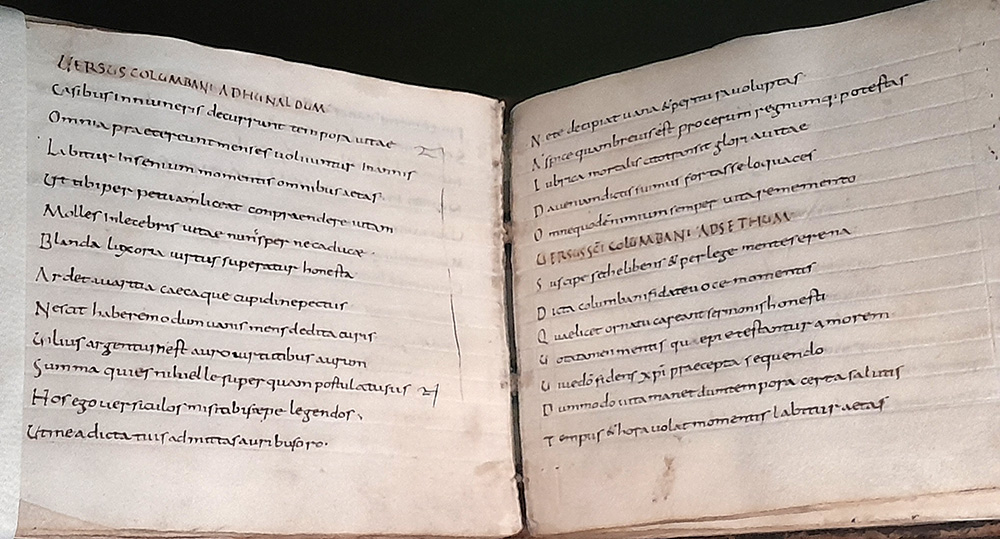 UERSUS COLUMBANI AD HUNALDUM
Casibus innumeris decurrunt tempora uitae
Omnia praetereunt menses uoluuntur in annis
Labitur in senium momentis omnibus aetas.
Ut tibi perpetuam liceat conpraendere uitam
Molles inlecebras uitae nunc sper ne caducae.
Blanda luxoria uirtus superatur honesta
Ardet auaritia caecaque cupidine pectus
Nescit habere modum uanis mens dedita curis
Uilius argentum est auro uirtutibus aurum
Summa quies nil uelle super quam postulat usus
Hos ego uersiculos misi tibi sepe legendos.
Ut mea dicta tuis admittas auribus oro.
Ne te decipiat uana & peritura uoluptas
Aspice quam breuis est procerum regnumq; potestas
Lubrica mortalis cito transit gloria uitae
Da ueniam dictis fuimus fortasse loquaces
Omne quod ē nimium semper uitare memento
UERSUS SC̄I COLUMBANI AD SETHUM
Suscipe sethe libens & perlege mente serena
Dicta columbani fida te uoce monentis
Quae licet ornatu careant sermonis honesti
Uota tamen mentis
testantur amorem
Uiue dō fidens xp̄i praecepta sequendo
Dummodo uita manet dum tempora certa salutis
Tempus & hora uolat momentis labitur aetas